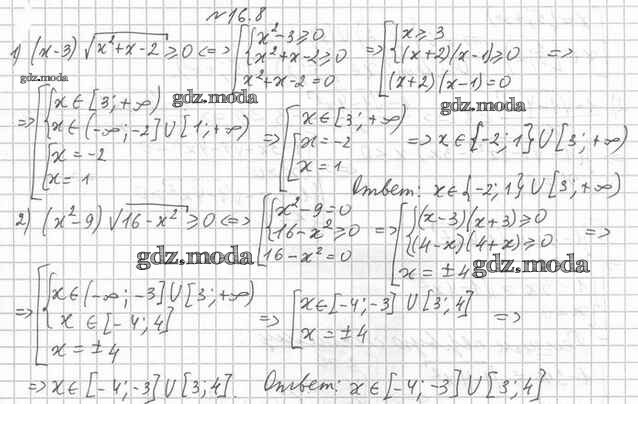 №16.8
1) (x-3) √(x²+x-2) ≥0 <=> [ { x²-3≥0 x²+x-2≥0 x²+x-2=0 => [ { x≥3 (x+2)(x-1)≥0 (x+2)(x-1)=0 =>
gdz.moda gdz.moda gdz.moda
=> [ { x∈[3;+∞) x∈(-∞;-2]∪[1;+∞) [ x=-2 x=1 => [ x∈[3;+∞) [ x=-2 x=1 => x∈{-2;1}∪[3;+∞)
Ответ: x∈{-2;1}∪[3;+∞)
2) (x²-9) √(16-x²) ≥0 <=> [ { x²-9=0 16-x²≥0 16-x²=0 => [ { (x-3)(x+3)≥0 (4-x)(4+x)≥0 x=±4 =>
gdz.moda gdz.moda
=> [ { x∈(-∞;-3]∪[3;+∞) x∈[-4;4] x=±4 => [ x∈[-4;-3]∪[3;4] x=±4 =>
=> x∈[-4;-3]∪[3;4]. Ответ: x∈[-4;-3]∪[3;4]